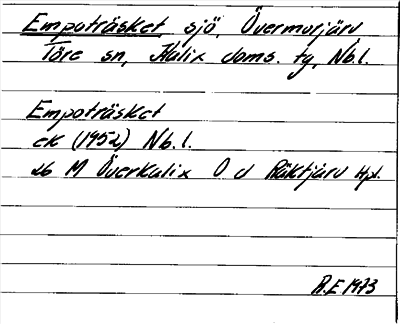 Empoträsket sjö, Övermorjärv
Töre sn, Kalix doms. tg, Nb.l.
Empoträsket
ek (1952) Nb.l.
26 M Överkalix O d Räktjärv Hpl.
R.E 1973